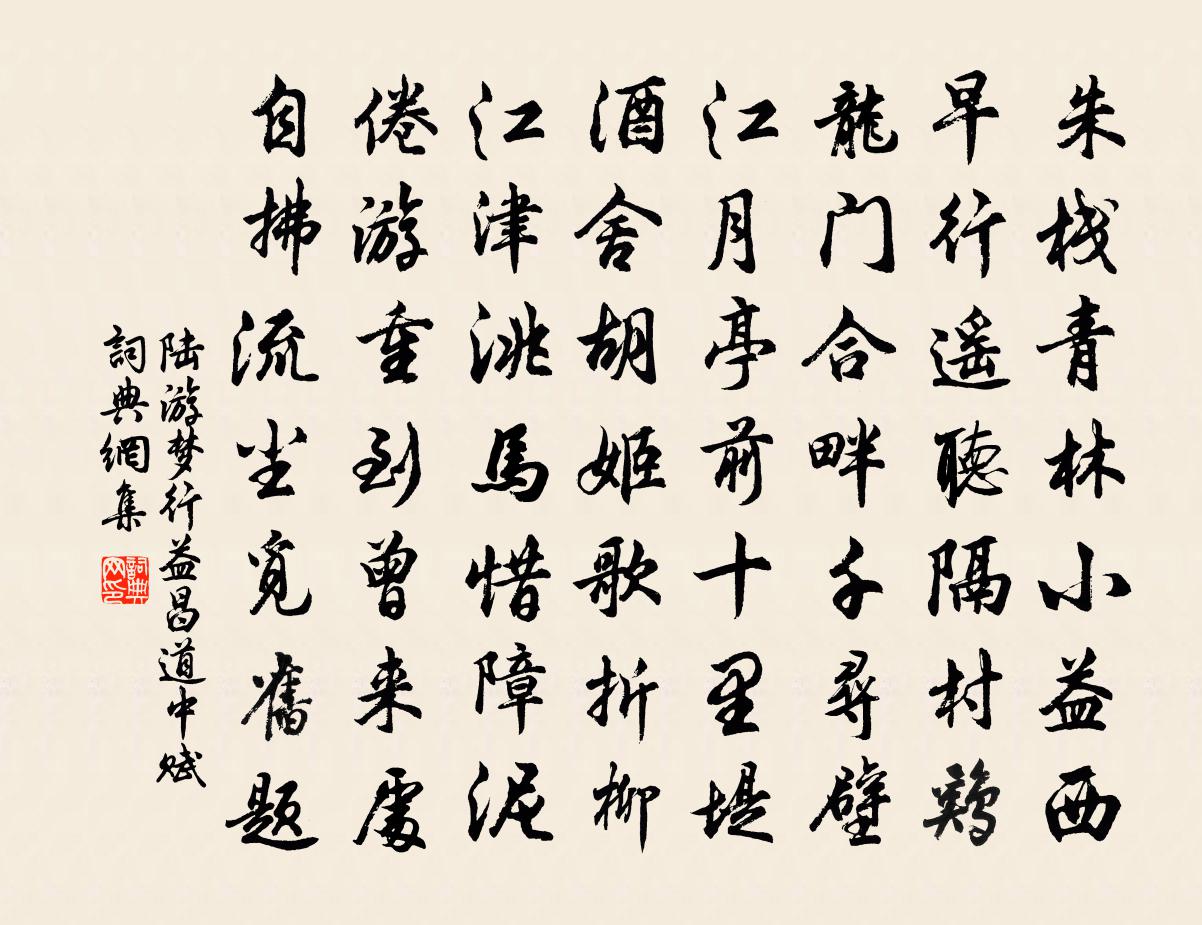 朱栈青林小益西
早行遥聽隔村鷄
龍门合畔千尋壁
江月亭前十里堤
酒舍胡姬歌折柳
江津洮馬惜障泥
倦游重到曾来處
自拂流尘覓舊題
陆游梦行益昌道中赋
詞典網集
詞典网印